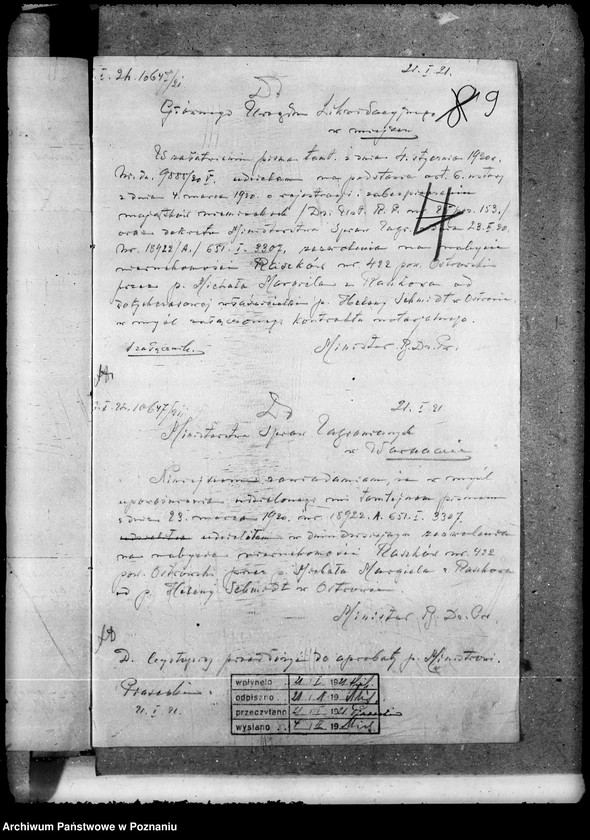 I. 2h. 10647/21
21. I. 21.
Do
Głównego Urzędu Likwidacyjnego
w miejscu
19
W załatwieniu pisma tamt. z dnia 4. stycznia 1920r.
udzielam na podstawie art. 6. ustawy
z dnia 4. marca 1920. o rejestracji i zabezpieczeniu
majątków niemieckich / Dz. Ust. R. P. nr. poz. 153./
oraz dekretu Ministerstwa Spraw Zagr. 23. III. 20.
Nr. 18922/A./651. I. 3307, zezwolenia na nabycie
nieruchomości Raszków nr. 422 pow. Ostrowski
przez p. Michała Margiela z Raszkowa od
dotychczasowej właścicielki p. Heleny Schmidt w Ostrowie,
w myśl załączonego kontraktu notarjalnego.
1 załącznik.
Minister B. Dz. Pr.
4
I. 2h. 10647/21
21. I. 21
Do
Ministerstwa Spraw Zagranicznych
w Warszawie
Niniejszem zawiadamiam, że w myśl
upoważnienia udzielonego mi tamtejszem pismem
z dnia 23. marca 1920. nr. 18922. A. 651. I. 3307.
udzieliłam w dniu dzisiejszym zezwolenia
na nabycie nieruchomości Raszków nr. 422
pow. Ostrowski przez p. Michała Margiela z Raszkowa
od p. Heleny Schmidt w Ostrowie.
Minister B. Dz. Pr.
D. czystopis przedłożyć do aprobaty p. Ministrowi.
21. I. 21.
wpłynęło 21 I 1921
odpisano 21 19
przeczytano 21 I 1921
wysłano 19
Archiwum Państwowe w Poznaniu